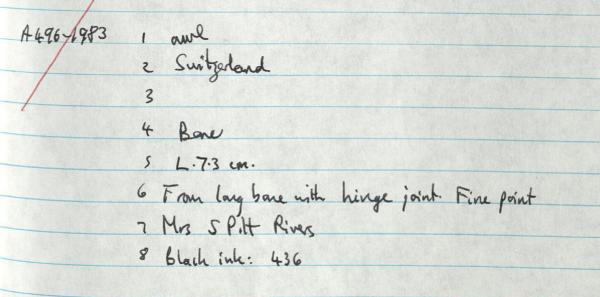 A496-1983 1 awl
2 Switzerland
3
4 Bone
5 L. 7.3 cm.
6 From long bone with hinge joint. Fine point
7 Mrs S Pitt Rivers
8 Black ink: 436